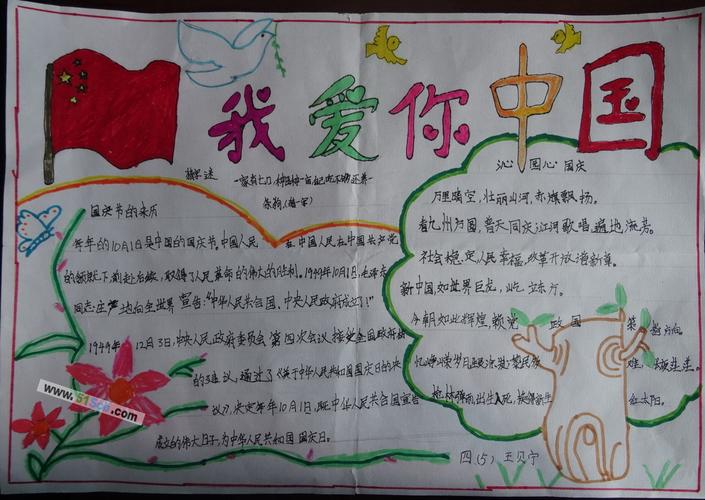 我爱你中国
国庆节的来历
每年的10月1日是中国的国庆节。中国人民 在中国人民在中国共产党
的领导下,前赴后继,取得了人民革命的伟大的胜利。1949年10月1日,毛泽东
同志庄严地向全世界宣告:“中华人民共合国,中央人民政府成立了!”
1949年12月3日,中央人民政府委员会第四次会议,接受全国政协
的建议,通过了《关于中华人民共和国国庆日的决
议》,决定每年10月1日,既中华人民共合国宣告
成立的伟大日子,为中华人民共和国国庆日。
心 国庆
万里晴空,壮丽山河,赤旗飘扬。
看九州方圆,普天同庆,江河歌唱,遍地流芳。
社会稳定,人民幸福,改革开放谱新章。
新中国,如世界巨龙,屹立东方。
今朝如此辉煌,赖党政国策指方向
忆峥嵘岁月 民族 难
枪林弹雨出生入死 红太阳。
四(5) 王贝宁
www.51scb.com